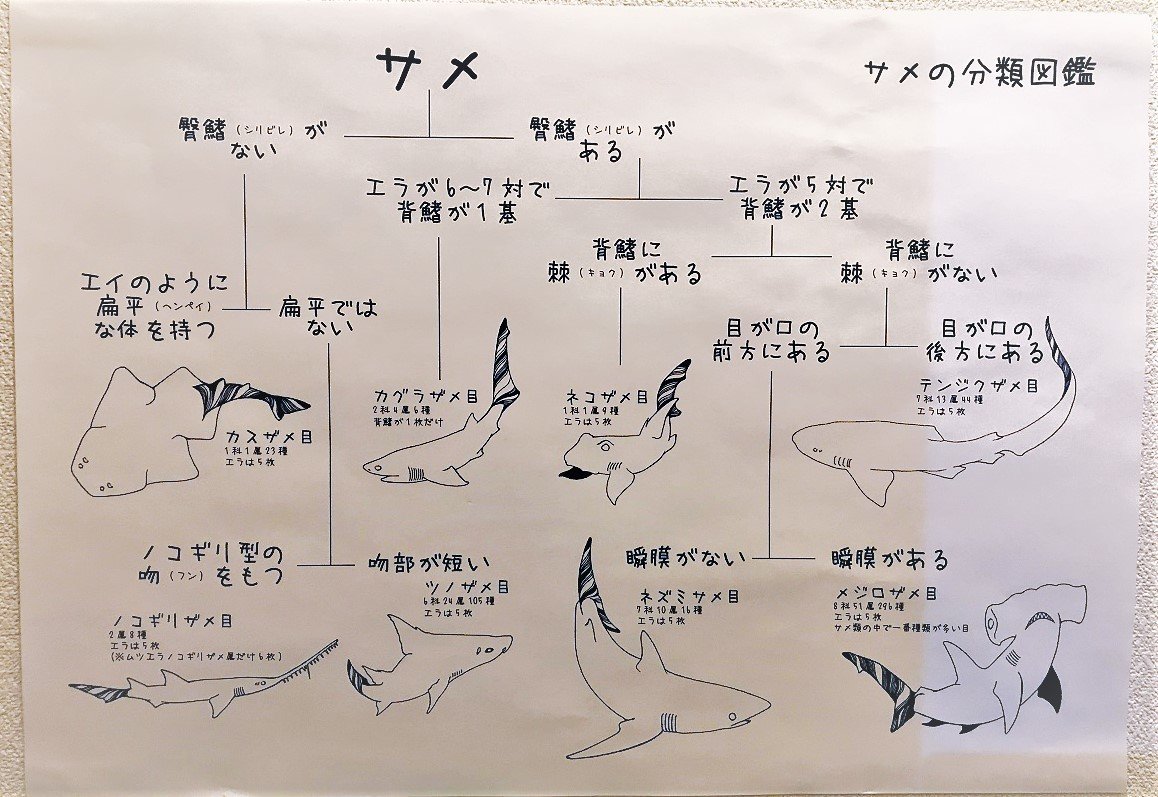 サメ
サメの分類図鑑
臀鰭（シリビレ）が
ない
臀鰭（シリビレ）が
ある
エラが6〜7対で
背鰭が1基
エラが5対で
背鰭が2基
背鰭に
棘（キョク）がある
背鰭に
棘（キョク）がない
エイのように
扁平（ヘンペイ）
な体を持つ
扁平では
ない
目が口の
前方にある
目が口の
後方にある
カスザメ目
1科1属23種
エラは5枚
カグラザメ目
2科4属6種
背鰭が1枚だけ
ネコザメ目
1科1属9種
エラは5枚
テンジクザメ目
7科13属44種
エラは5枚
ノコギリ型の
吻（フン）をもつ
吻部が短い
瞬膜がない
瞬膜がある
ノコギリザメ目
2属8種
エラは5枚
（※ムツエラノコギリザメ属だけ6枚）
ツノザメ目
6科24属105種
エラは5枚
ネズミザメ目
7科10属16種
エラは5枚
メジロザメ目
8科51属296種
エラは5枚
サメ類の中で一番種類が多い目